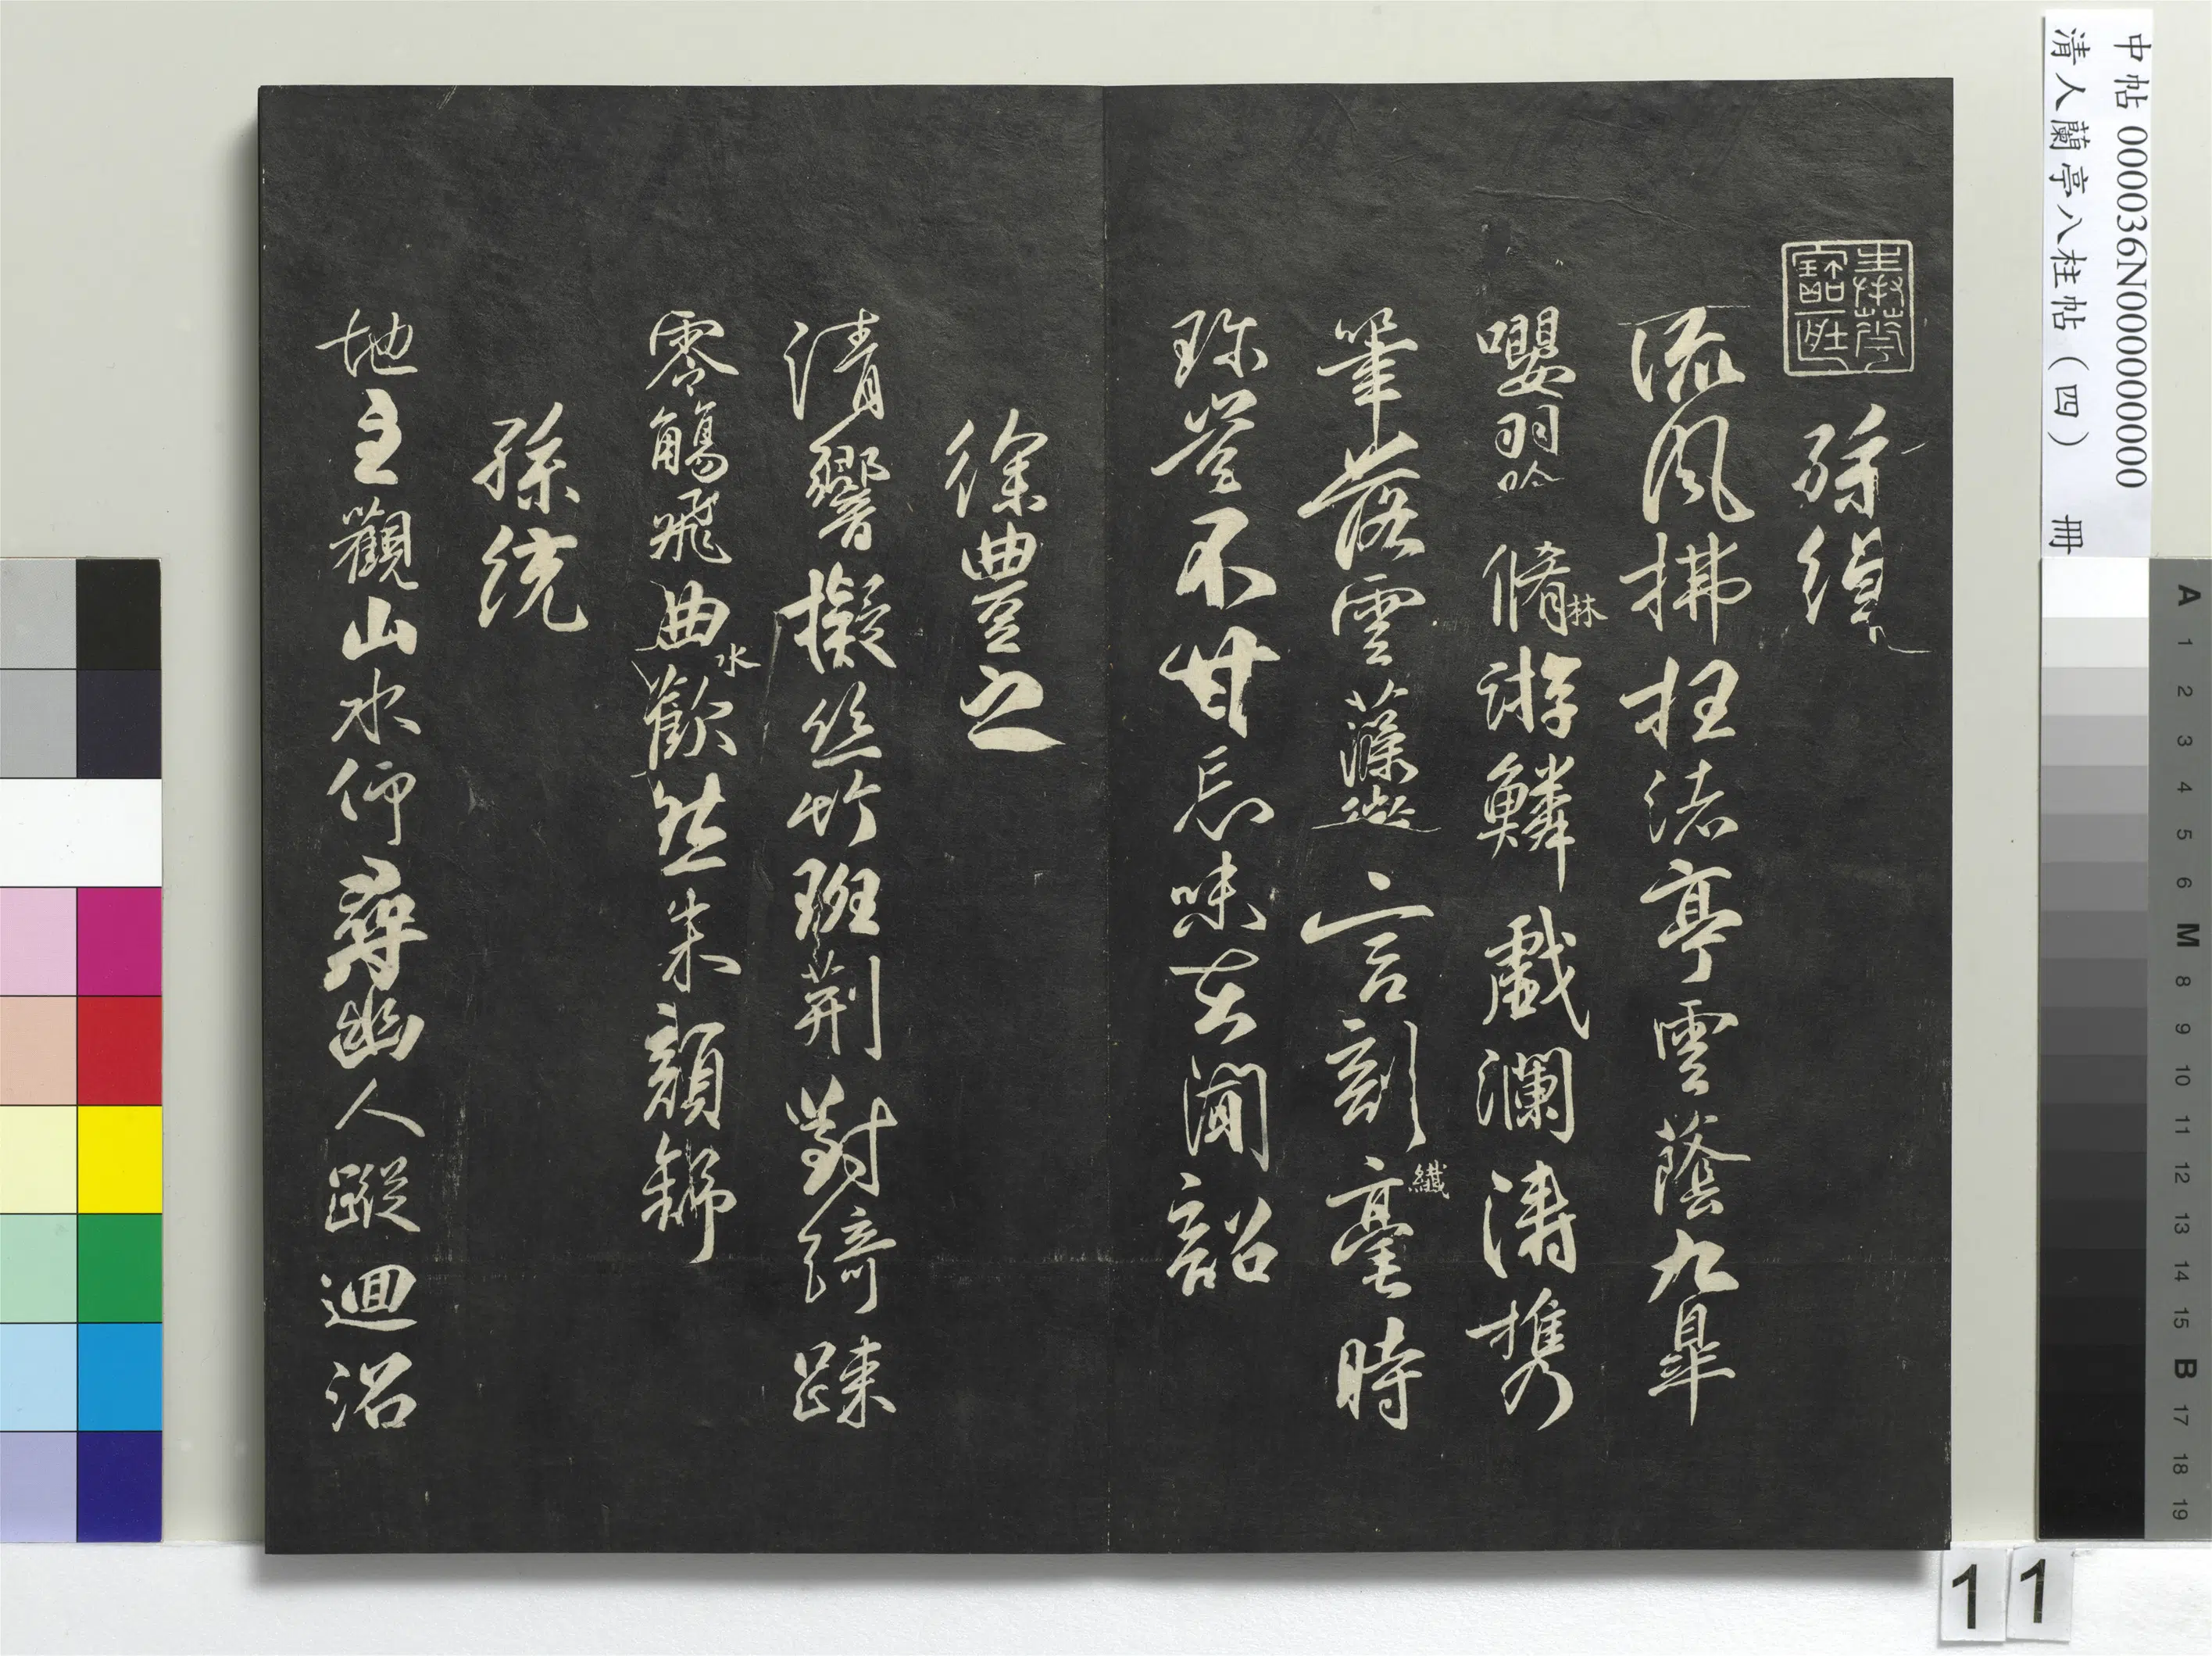 孫綽
流風拂枉渚亭雲蔭九皐
嚶羽吟脩林游鱗戲瀾濤携
筆落雲藻微言剖纖毫時
珎豈不甘忘味在聞韶
徐豊之
清響擬絲竹班荆對綺疎
零觴飛曲水歡然朱顔舒
孫統
地主觀山水仰尋幽人蹤迴沼
中帖 000036N000000000
清人蘭亭八柱帖（四） 冊
A 1 2 3 4 5 6 M 8 9 10 11 12 13 14 15 B 17 18 19
11